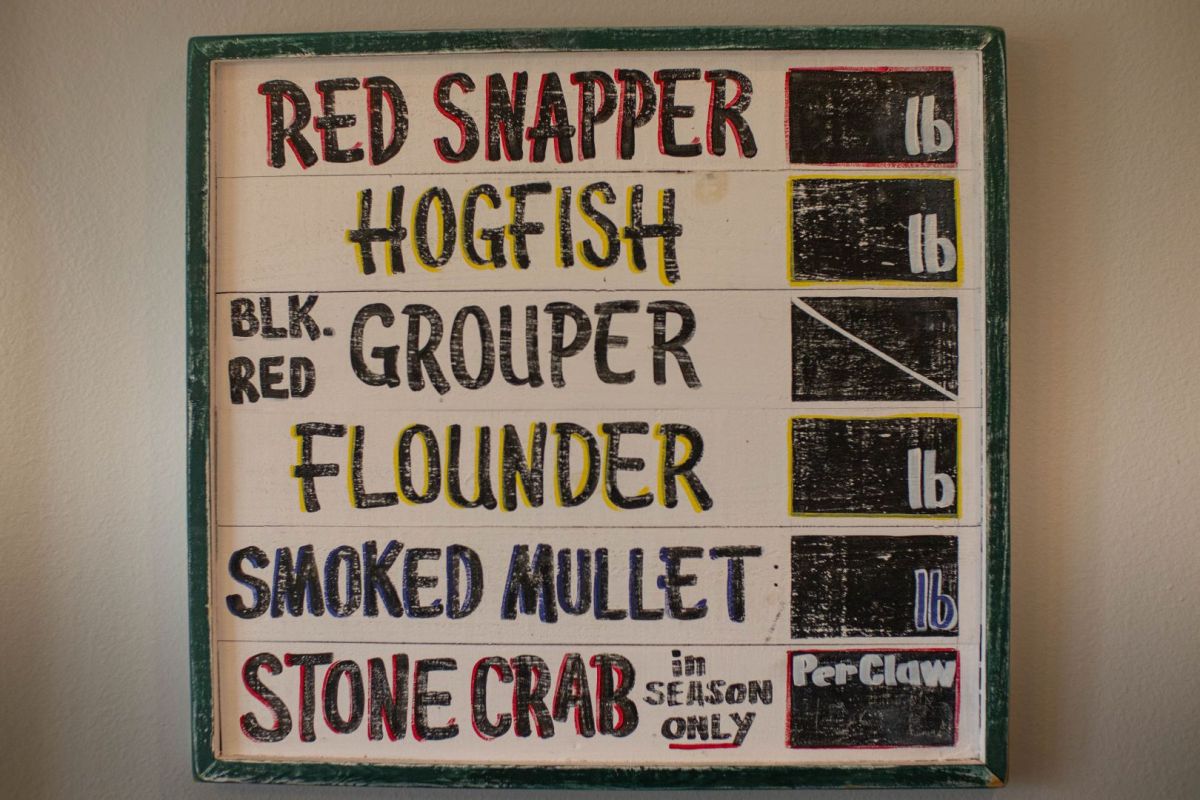 RED SNAPPER lb
HOGFISH lb
BLK. RED GROUPER
FLOUNDER lb
SMOKED MULLET lb
STONE CRAB in SEASON ONLY Per Claw